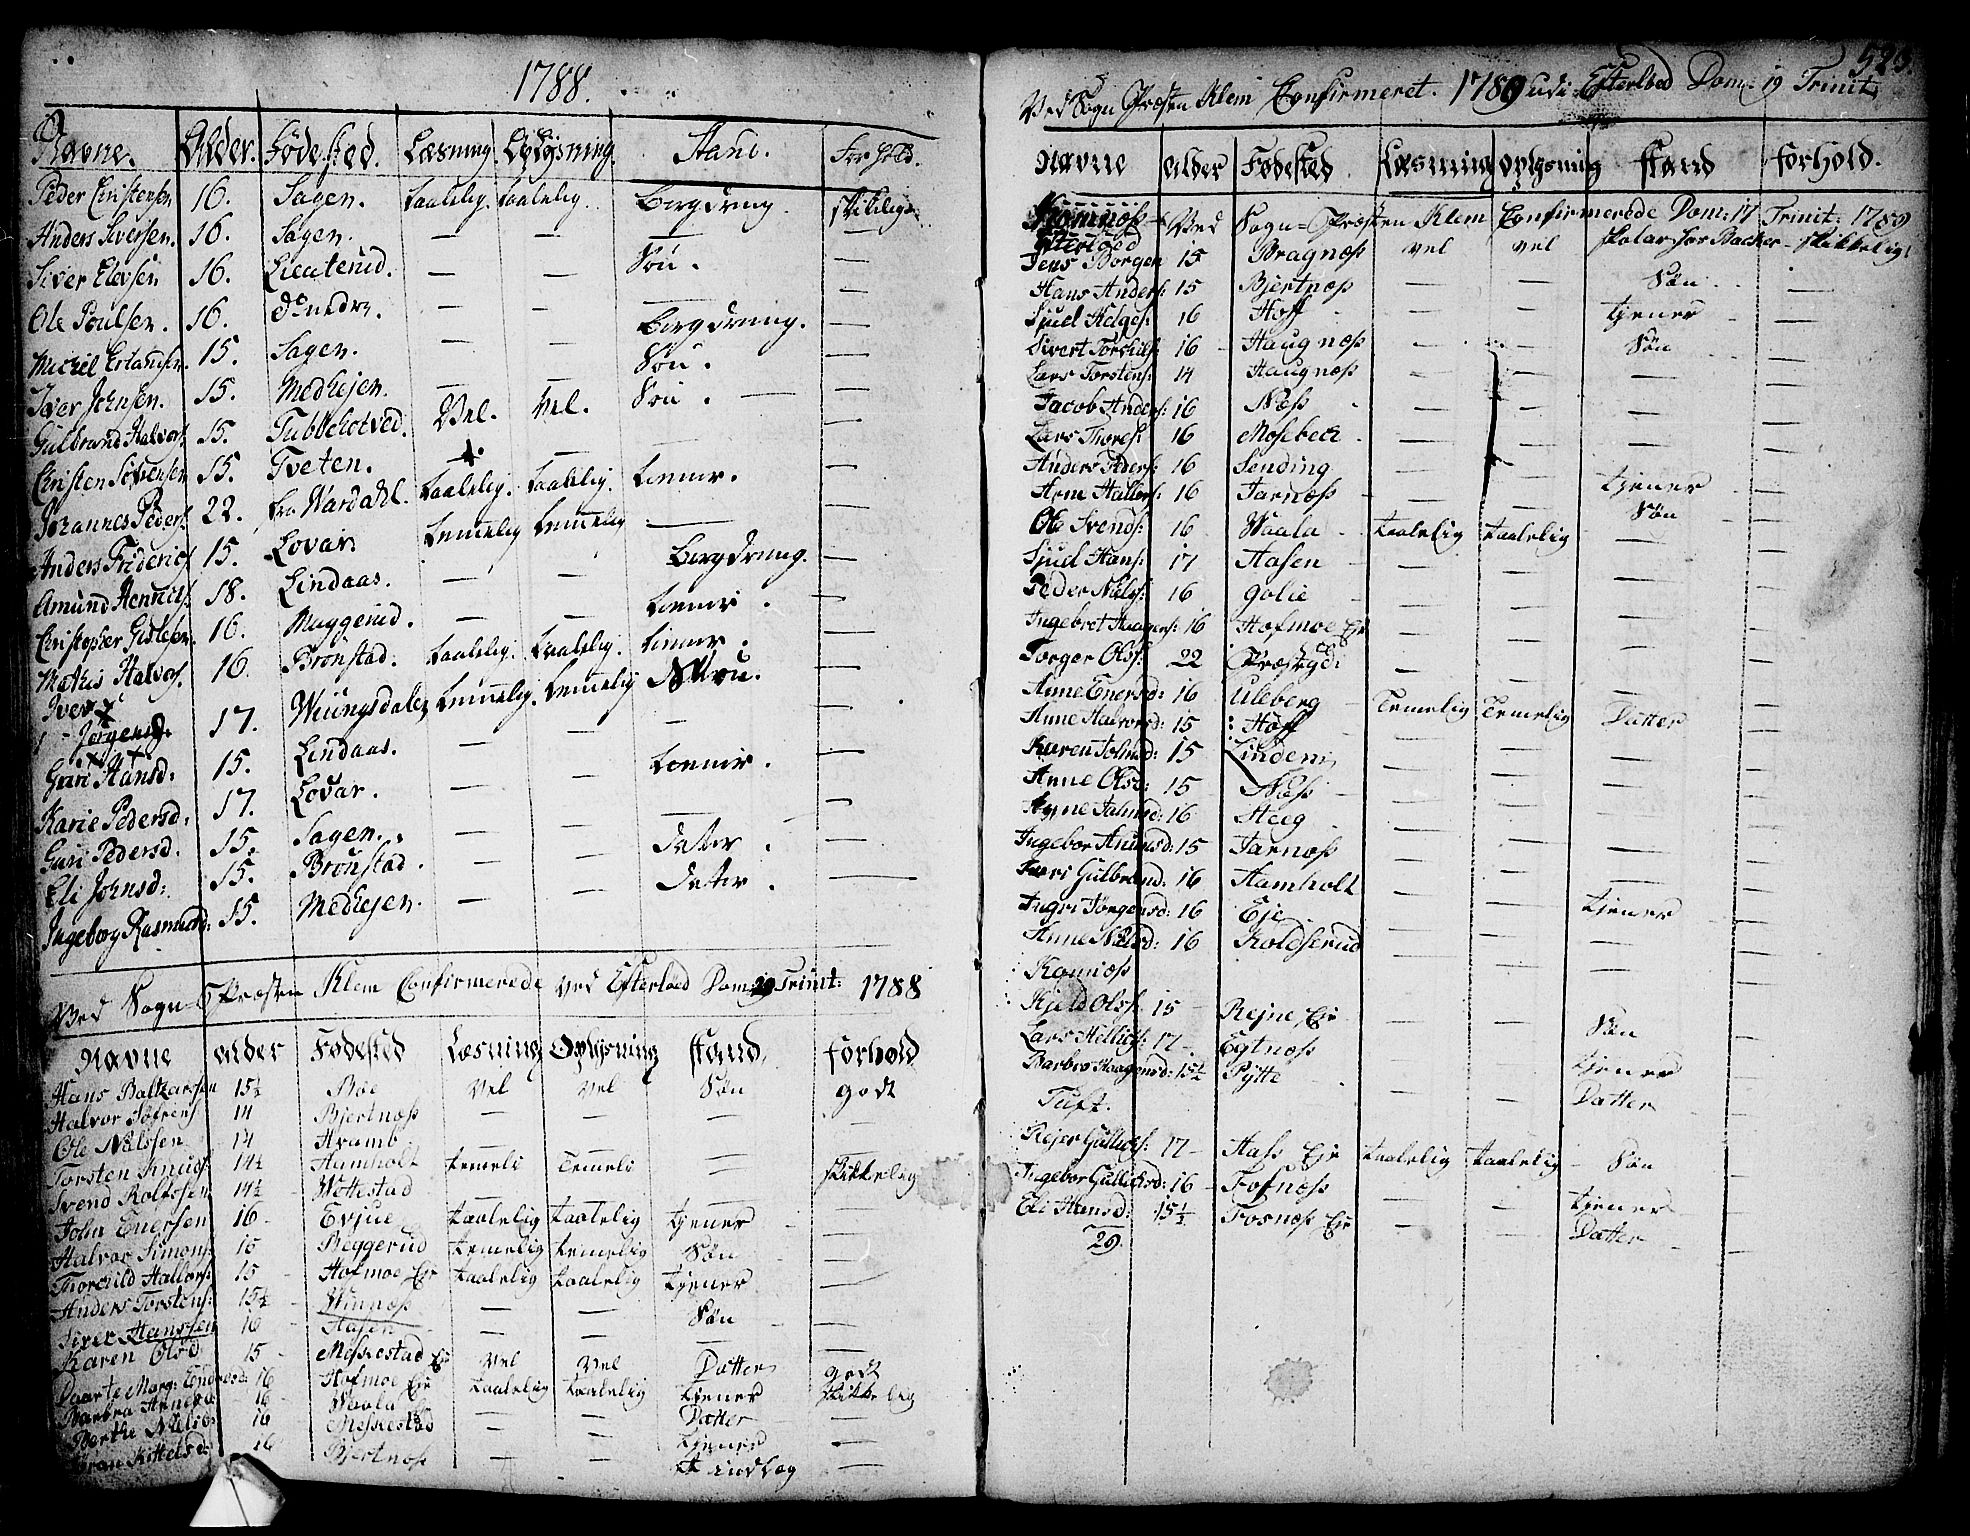 1788.
Navne. Alder. Fødested. Læsning. Oplysning. Stand. Forhold.
Peder Christensen 16. Sagen. taalelig. taalelig. Bergdreng. skikkelig
Anders Siversen. 16. Sagen. — — — —
Siver Elevsen 16. — — Søn. —
Ole Poulsen. 16. — — — —
Michel Erlandsen. 15. Sagen. — — Bergdreng. —
Iver Johnsen. 15. Medhejen. — — Søn. —
Gulbrand Halvors. 15. Tubbehotved. Vel. Vel. Søn. —
Christen Sørensen 15. Tveten. — — —
Johannes Peders. 22. fra Wardahl. taalelig. taalelig. tienner. —
Anders Frideric 15. Lovar. temmelig temmelig — —
Amund Hennits. 18. Lindaas. — — Bergdreng. —
Christopher Gulles. 16. Muggerud. — — tienner. —
Mathis Halvors. 16. Brønstad. taalelig. taalelig. tienner. —
Iver Jørgens. 17. Wiungsdalen temmelig. temmelig Søn. —
Guri Hansd: 15. Lindaas. — — —
Karie Pedersd: 17. Lovar. — — tienner. —
Guri Pedersd. 15. Sagen. — — —
Eli Johnsd: 15. Brønstad. — — Dater. —
Ingeborg Rasmusd: 15. Medhejen. — — Dater. —
Ved Sogne-Præsten Klem Confirmerede ved Efterløed Dom: 19 Trinit: 1788
Navne alder Fødested Læsning Oplysning stand forhold
Hans Baltzarsen 15½ Moe vel vel Søn godt
Halvor Sørens 14 Bjertnæs — — — —
Ole Nielssen 14 Hramb — — — —
Torsten Knuds 14½ Hamholt temeli temmeli — skikkelig
Svend Rolfssen 14½ Wottestad — — —
John Enersen 16 Evjue taalelig taalelig tjener —
Halvor Simons 15 Beggerud temelig temmelig Søn —
Thorchild Hallors: 15 Hofmoe Eje taalelig taalelig tjener —
Anders Torstens: 15½ Winnæs — — Søn —
Siver Hanssen 16 Aasen — — —
Karen Olsd 15 Meskestad Eje vel vel Datter godt
Daarte Marg: Endresd: 16 Hofmoe Eje taalelig taalelig tjener skikkelig
Barbra 16 Waala — — Datter —
Berthe Nielsd: 16 Meskestad — — tjener —
Jøran Kittelsd: 16 Bjertnæs — — indlæg —
523.
Ved Sogn Præsten Klem Confirmeret. 1789 udi Efterløed Dom: 19 Trinit:
Navne alder Fødested Læsning oplysning stand forhold.
Komnæs Ved Sogn=Præsten Klem Confirmerede Dom: 17 Trinit: 1789
Efterløed
Jens Borgen 15 Bragnæs vel vel skolar hos Backer skikkelig
Hans Anders: 15 Bjertnæs — — Søn —
Sjuel Helges: 16 Hoff — — tjener —
Sivert Torchils: 16 Haugnæs — — Søn —
Lars Torstens: 14 Haugnæs — — —
Jacob Anders: 16 Næs — — —
Lars Thores: 16 Mosebech — — —
Anders Peders: 16 Sending — — —
Arne Hallors: 16 Jarnæs — — tjener —
Ole Svends: 16 Waala taalelig taalelig Søn —
Sjuel Hans: 17 Aasen — — —
Peder Niels: 16 Golie — — —
Ingebret Haagens: 16 Hofmoe Eje — — —
Torger Ols: 22 Præstgd — — —
Anne Enersd: 16 Uleberg Temelig Temelig Datter —
Anne Halvorsd: 15 Hoff — — —
Karen 15 Lindem — — —
Anne Olsd: 15 Næs — — —
16 Heeg — — —
Ingebor Amunsd: 15 Jarnæs — — —
Guri Gulbrand: 16 Hamholt — — —
Ingri Jørgensd: 16 Eje — — tjener —
Anne Nielsd: 16 Koldserud — — —
Komnæs
Kjeld Ols: 15 Rejne Eje — — Søn —
Lars Hellichs: 17 Egtnæs — — tjener —
Barbro Haagensd: 15½ Pytte — — Datter —
Tuft.
Rejer Gullichs: 17 Aass Eje taalelig taalelig Søn —
Ingebor Gullichsd: 16 Fosnæs — — tjener —
Eli Hansd: 15½ Fosnæs Eje — — Datter —
29.